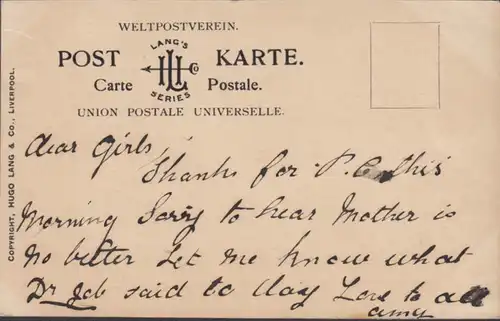 WELTPOSTVEREIN.
POST KARTE.
LANG'S
HL Co
SERIES
Carte Postale.
UNION POSTALE UNIVERSELLE.
COPYRIGHT, HUGO LANG & CO., LIVERPOOL.
Dear Girls,
Thanks for P.C. this
Morning Sorry to hear Mother is
no better Let me know what
Dr Job said to day Love to all
Amy